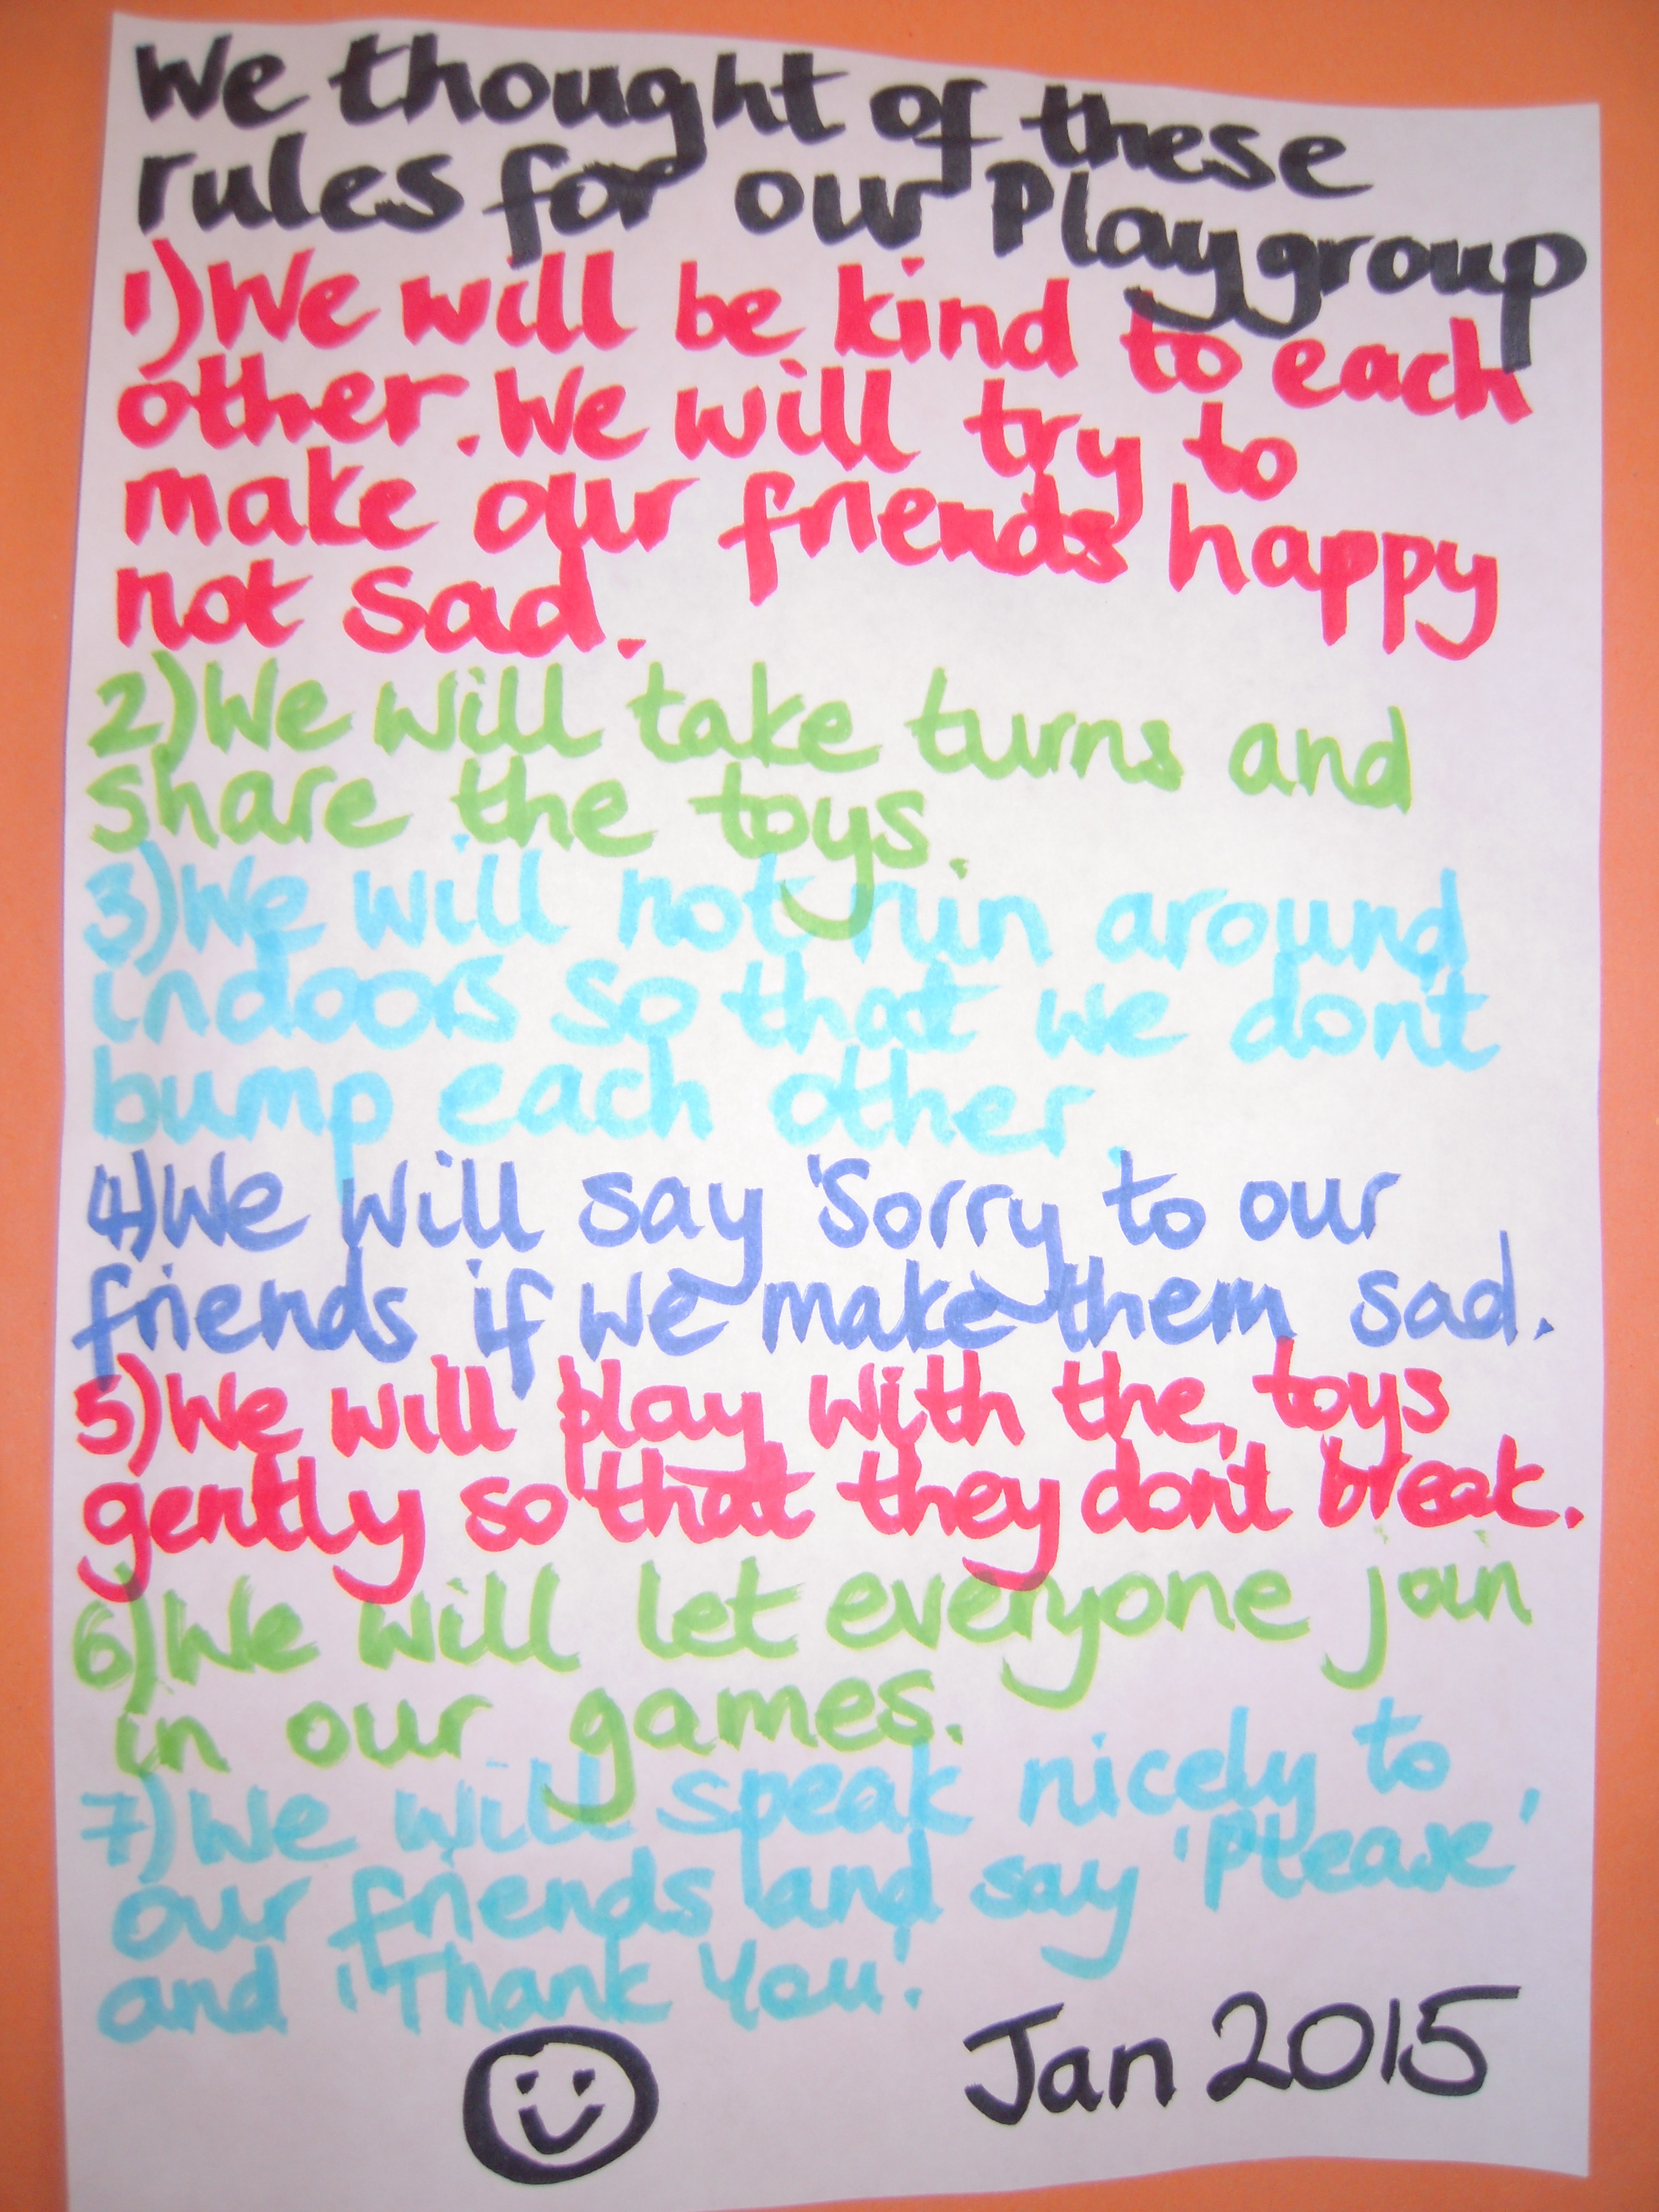 We thought of these
rules for our Playgroup
1) We will be kind to each
other. We will try to
make our friends happy
not sad.
2) We will take turns and
share the toys.
3) We will not run around
indoors so that we dont
bump each other.
4) We will say 'Sorry to our
friends if we make them sad.
5) We will play with the toys
gently so that they don't break.
6) We will let everyone join
in our games.
7) We will speak nicely to
our friends and say 'Please'
and 'Thank You'.
Jan 2015